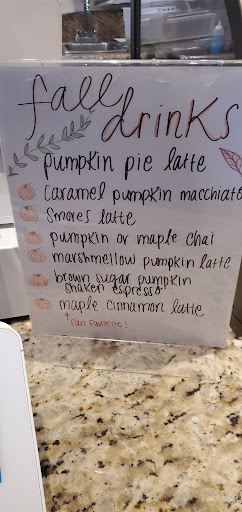 fall drinks
pumpkin pie latte
Caramel pumpkin macchiato
Smores latte
pumpkin or maple chai
marshmellow pumpkin latte
brown sugar pumpkin
shaken espresso
maple cinnamon latte
↑ fan favorite!